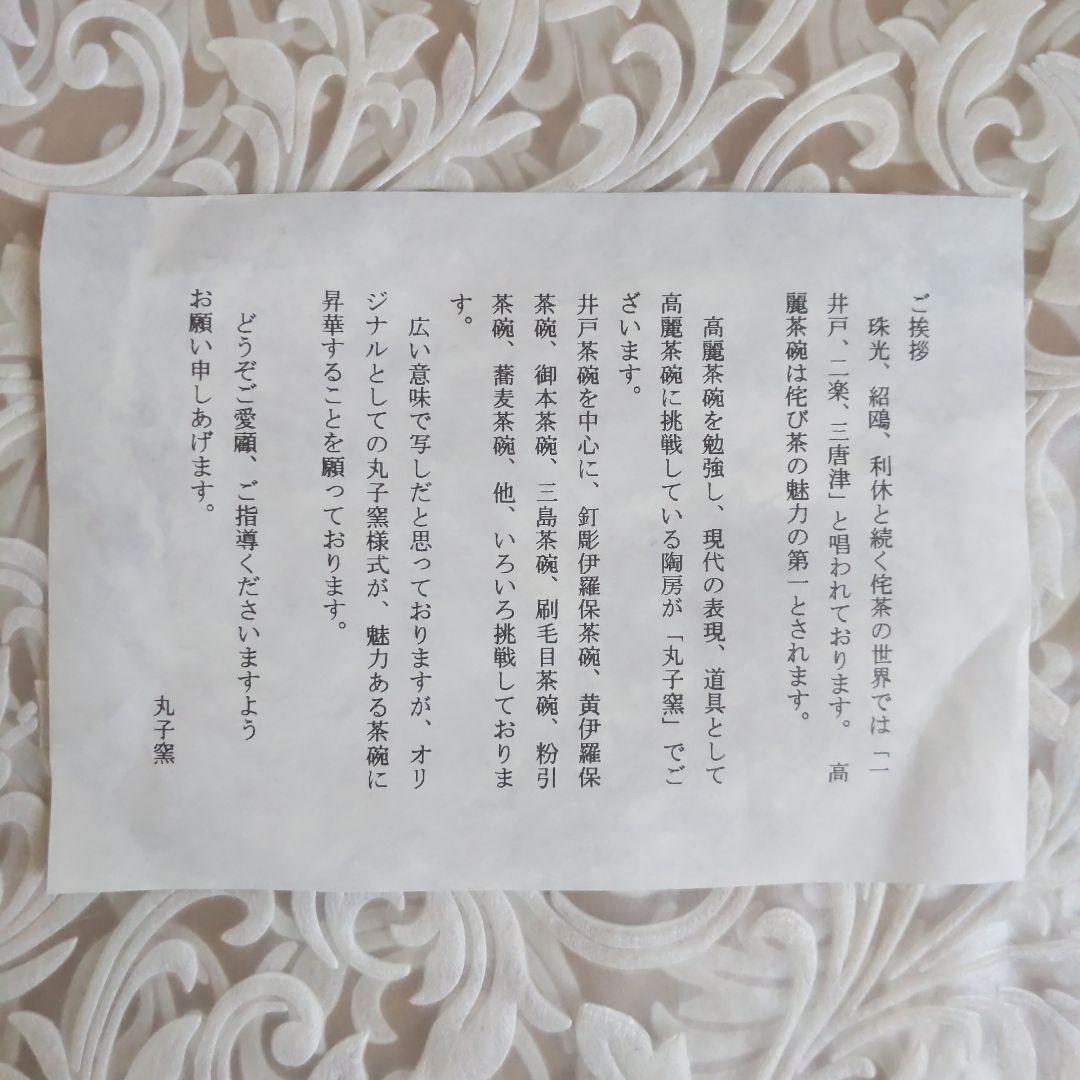 ご挨拶
珠光、紹鴎、利休と続く侘茶の世界では「一
井戸、二楽、三唐津」と唱われております。　高
麗茶碗は侘び茶の魅力の第一とされます。
高麗茶碗を勉強し、現代の表現、道具として
高麗茶碗に挑戦している陶房が「丸子窯」でご
ざいます。
井戸茶碗を中心に、釘彫伊羅保茶碗、黄伊羅保
茶碗、御本茶碗、三島茶碗、刷毛目茶碗、粉引
茶碗、蕎麦茶碗、他、いろいろ挑戦しておりま
す。
広い意味で写しだと思っておりますが、オリ
ジナルとしての丸子窯様式が、魅力ある茶碗に
昇華することを願っております。
どうぞご愛顧、ご指導くださいますよう
お願い申しあげます。
丸子窯